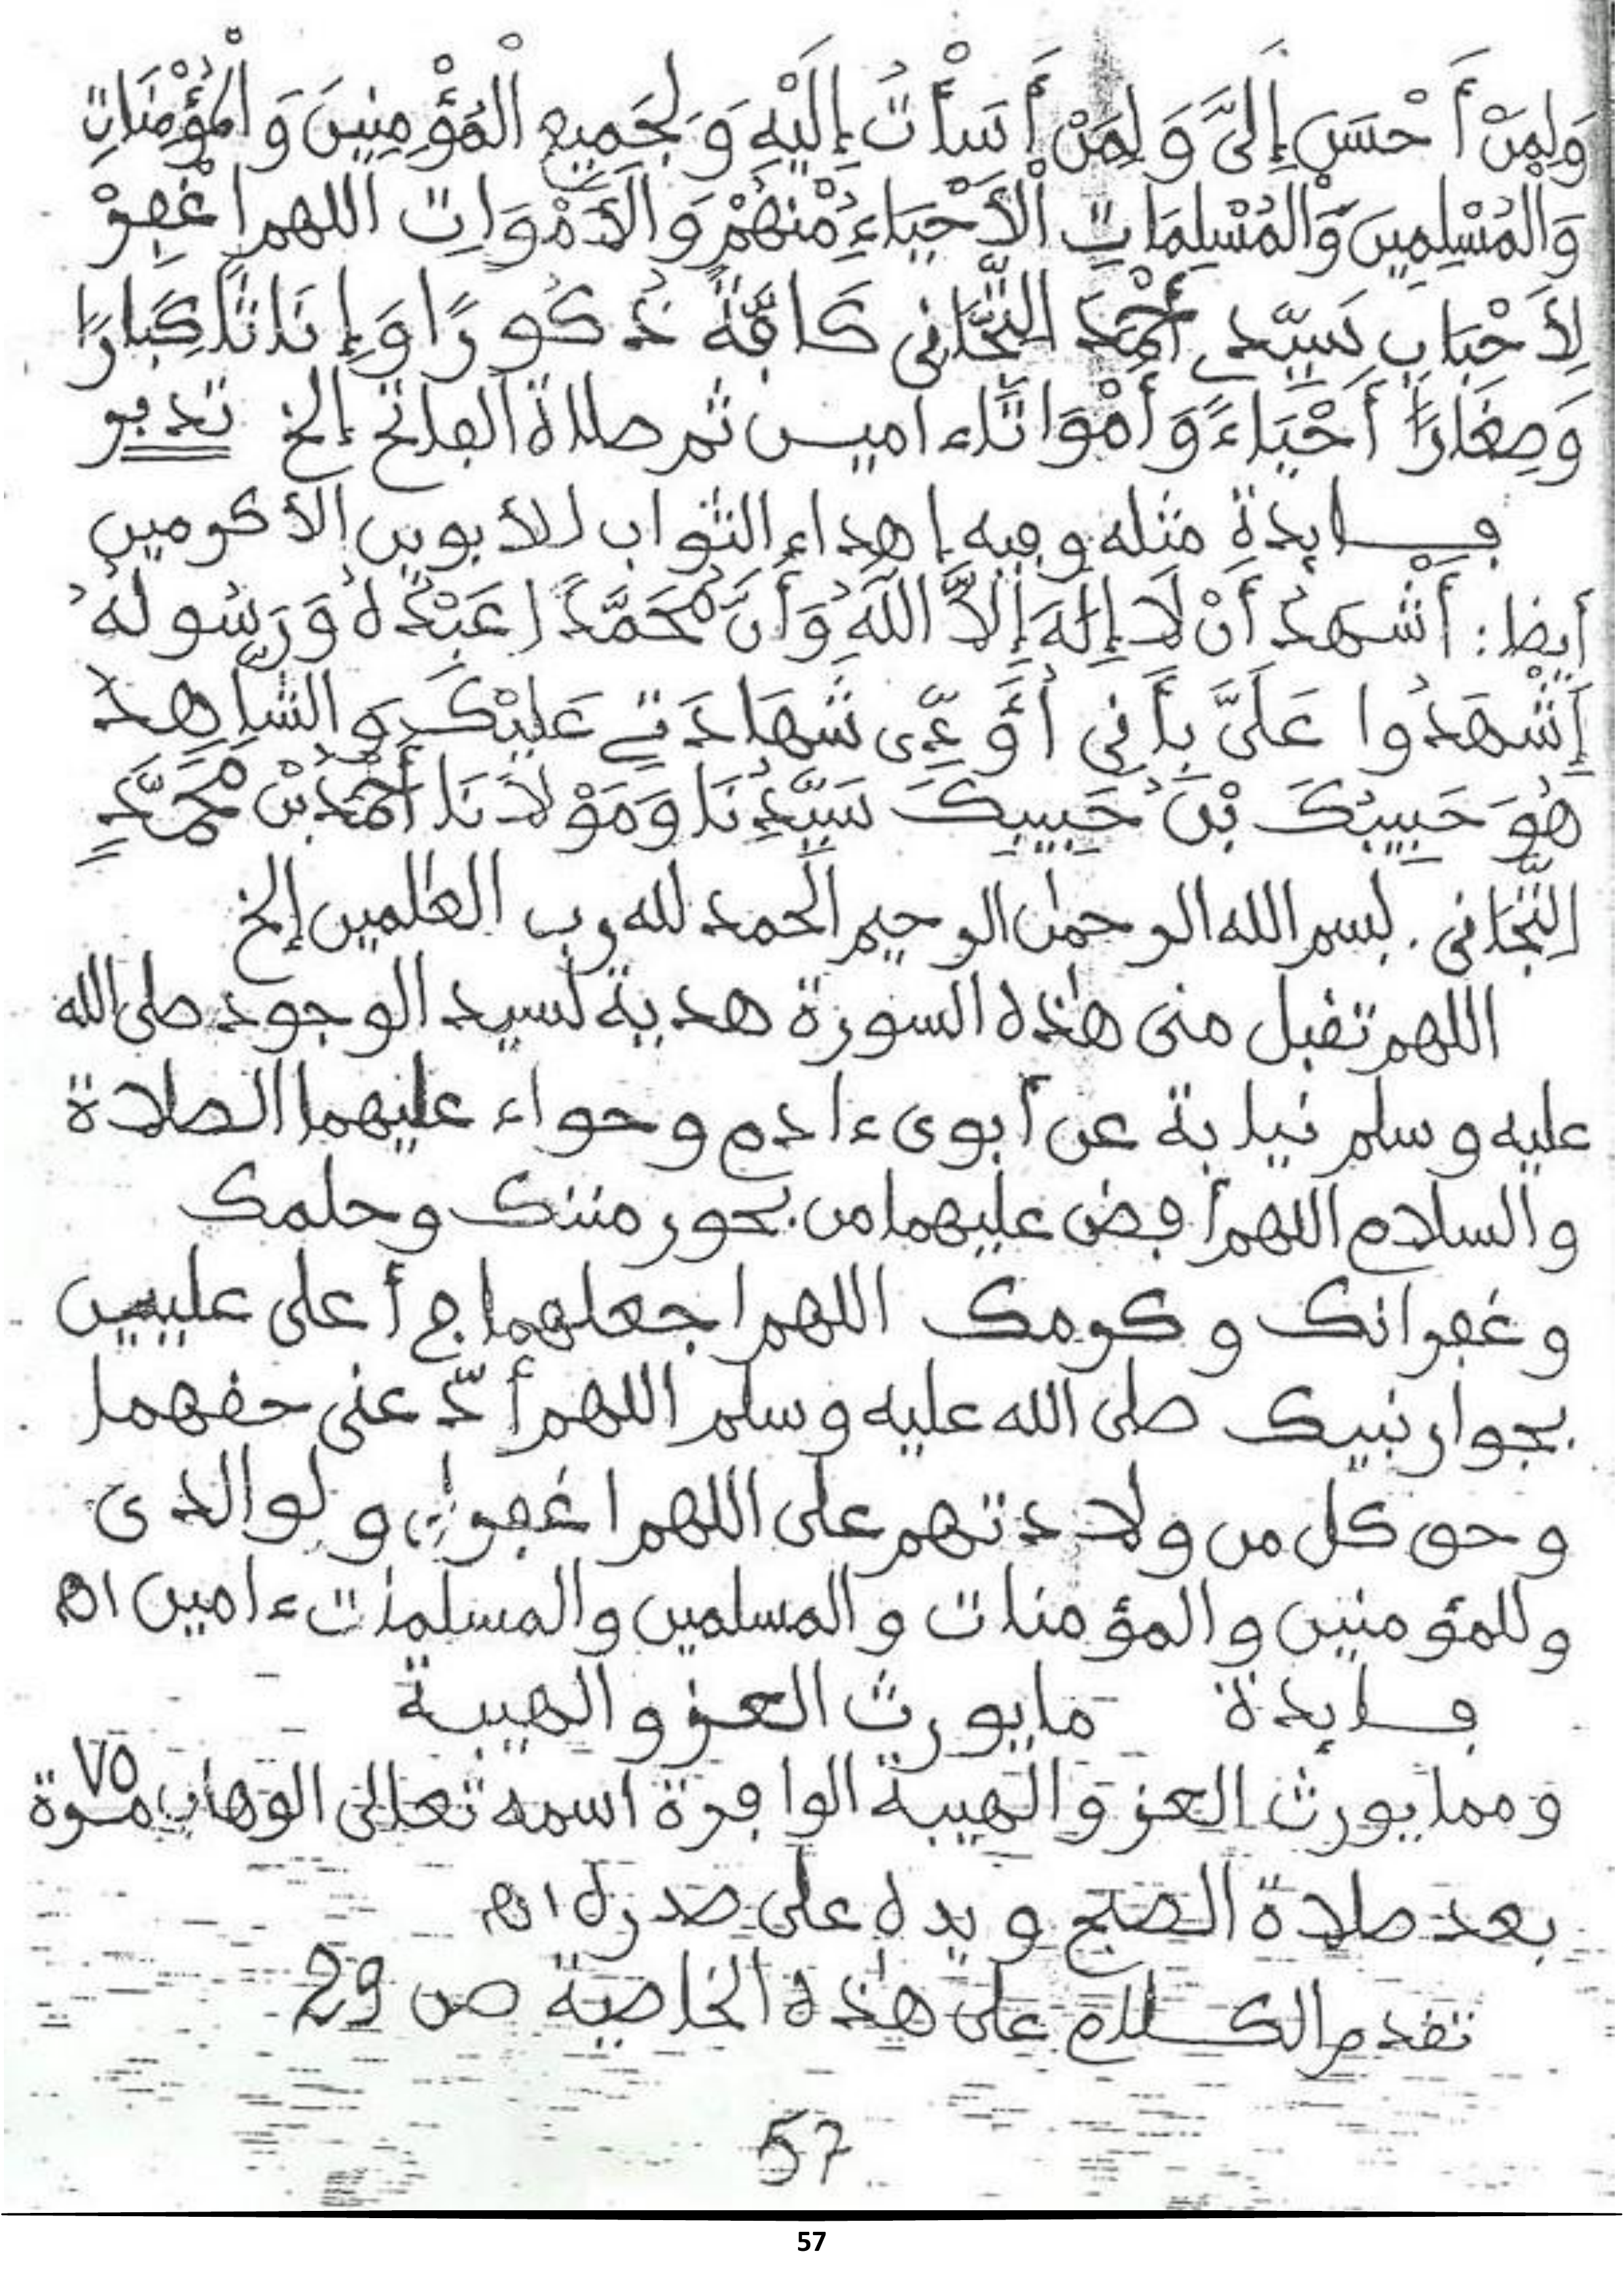 وَلِمَنْ أَحْسَنَ إِلَيَّ وَلِمَنْ أَسَأْتُ إِلَيْهِ وَلِجَمِيعِ الْمُؤْمِنِينَ وَالْمُؤْمِنَاتِ
وَالْمُسْلِمِينَ وَالْمُسْلِمَاتِ الْأَحْيَاءِ مِنْهُمْ وَالْأَمْوَاتِ اللهم اغْفِرْ
لِأَحْبَابِ سَيِّدِي أَحْمَدَ التِّجَانِي كَافَّةً ذُكُورًا وَإِنَاثًا كِبَارًا
وَصِغَارًا أَحْيَاءً وَأَمْوَاتًا ءامين ثم صلاة الفاتح إلخ تدبر
فايدة مثله وفيه إهداء الثواب للأبوين الأكرمين
أيضا: أَشْهَدُ أَنْ لَا إِلَهَ إِلَّا اللَّهُ وَأَنَّ مُحَمَّدًا عَبْدُهُ وَرَسُولُهُ
إِشْهَدُوا عَلَيَّ بِأَنِّي أُؤَدِّي شَهَادَتِي عَلَيْكَ وَالشَّاهِدُ
هُوَ حَبِيبُكَ بْنُ حَبِيبِكَ سَيِّدُنَا وَمَوْلَانَا أَحْمَدُ بْنُ مُحَمَّدٍ
التِّجَانِي. بسم الله الرحمٰن الرحيم الحمد لله رب العٰلمين إلخ
اللهم تقبل منى هٰذه السورة هدية لسيد الوجود صلى الله
عليه وسلم نيابة عن أبوى ءادم وحواء عليهما الصلاة
والسلام اللهم أفض عليهما من بحور مننك وحلمك
وغفرانك وكرمك اللهم اجعلهما في أعلى عليين
بجوار نبيك صلى الله عليه وسلم اللهم أدّ عنى حقهما
وحق كل من ولادتهم على اللهم اغفر لى ولوالدى
وللمؤمنين والمؤمنات والمسلمين والمسلمٰت ءامين اه
فايدة ما يورث العز والهيبة
ومما يورث العز والهيبة الوافرة اسمه تعالى الوهاب ٧٥ مرة
بعد صلاة الصبح ويده على صدره اه
تقدم الكلام على هٰذه الخاصية ص 29
57
57